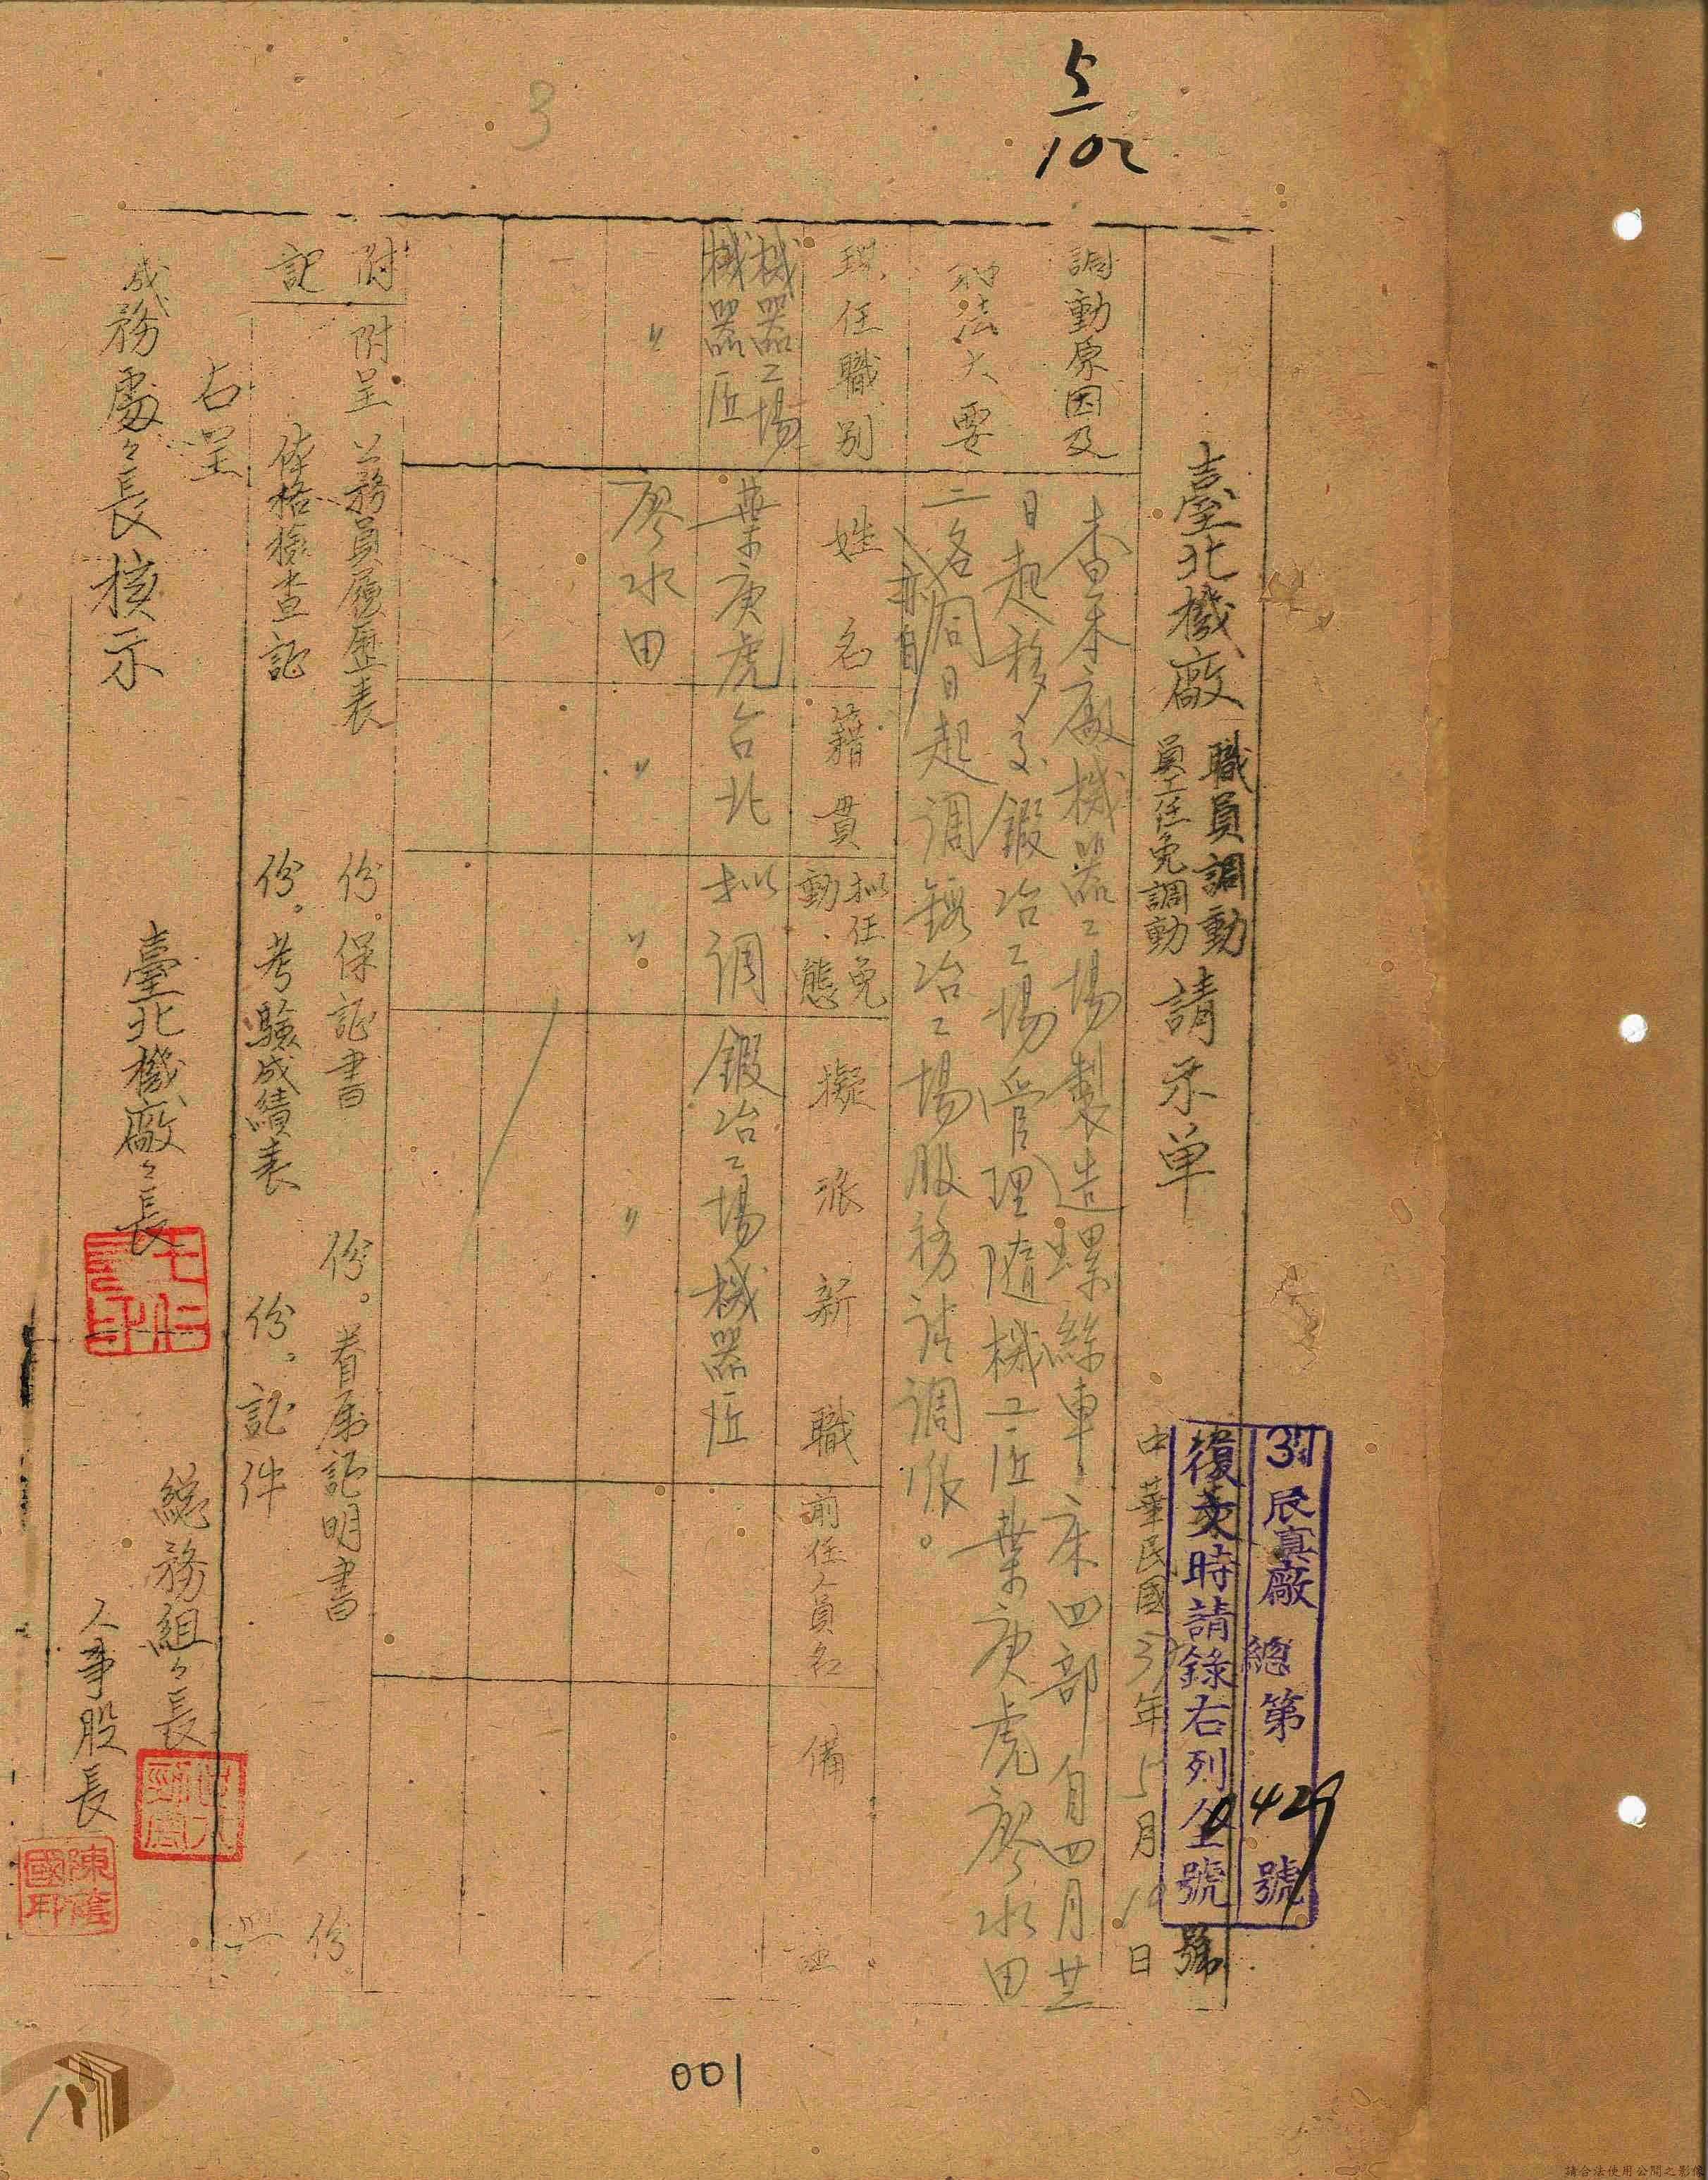 5/102
3
臺北機廠
職員調動
員工任免調動
請示单
號
37辰寘廠總第0429號
復文時請錄右列全號
中華民國37年5月10日
調動原因及
辦法大要
查本廠機器工場製造螺絲車床四部自四月廿
日起移交鍛冶工場管理隨機工匠葉庚虎廖水田
二名
亦自
同日起调鍛冶工場服務请调派。
現任職別
姓名
籍貫
拟任免
動態
擬派新職
前任人員名
備註
機器工場
機器匠
葉庚虎
台北
拟调
鍛冶工場機器匠
〃
廖水田
〃
〃
〃
附記
附呈公務員履歷表 份。保証書 份。眷屬証明書 份
体格檢查証 份。考驗成績表 份。証件
右呈
處々長核示
臺北機廠々長
總務組々長
人事股長
001
請合法使用公開之影像